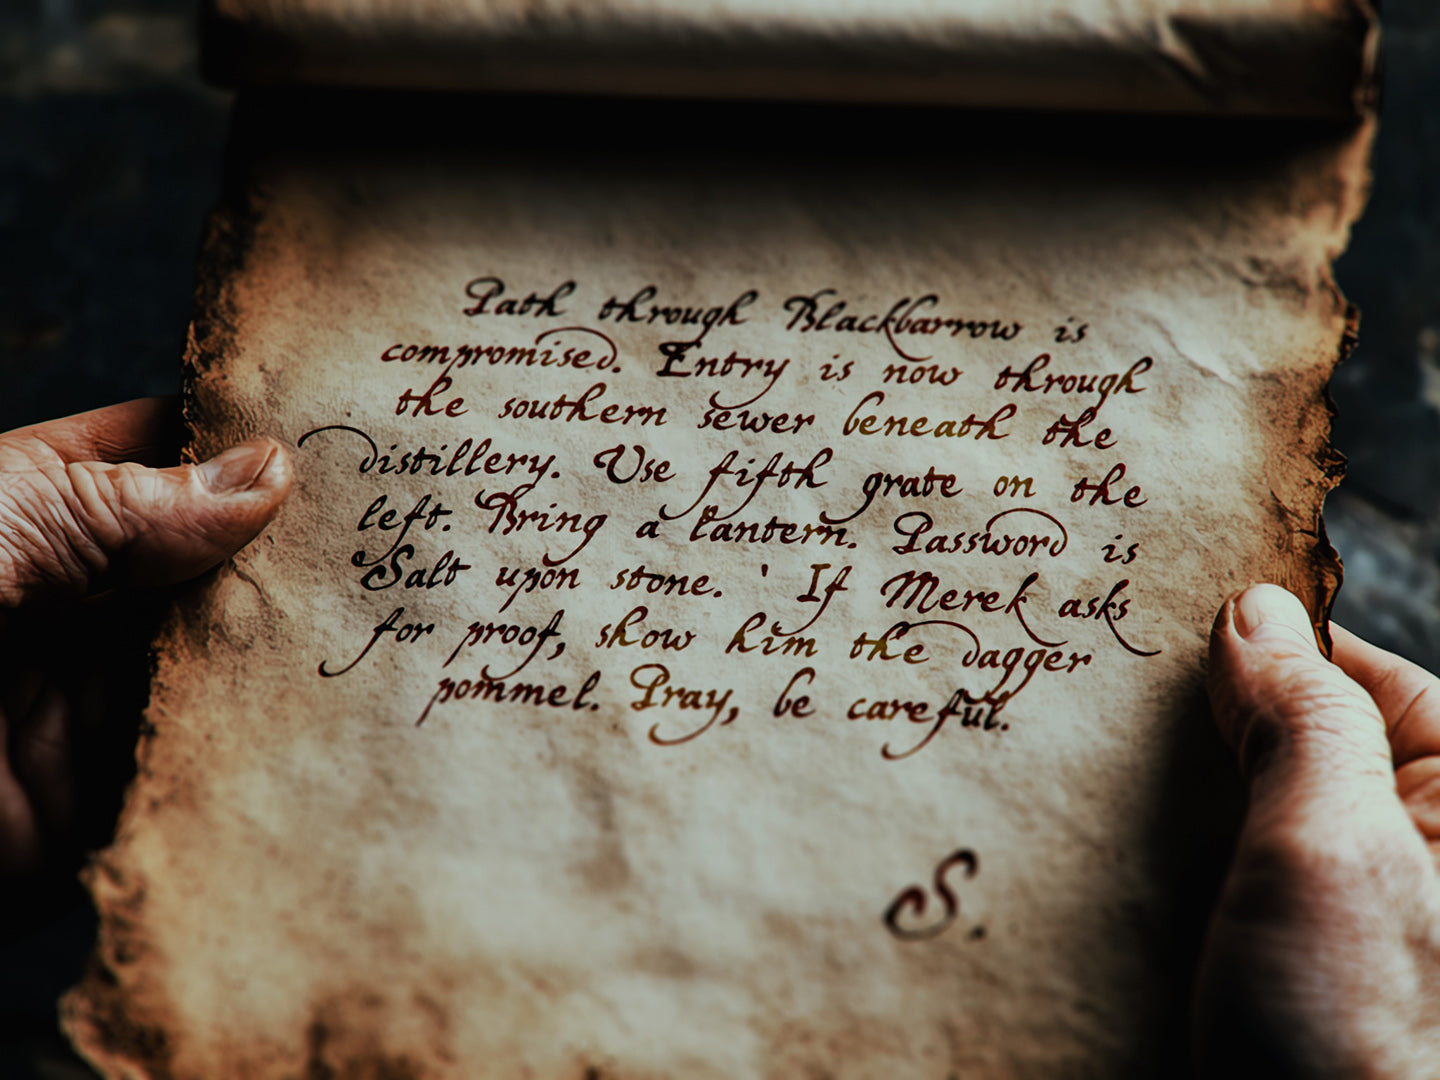 Path through Blackbarrow is
compromised. Entry is now through
the southern sewer beneath the
distillery. Use fifth grate on the
left. Bring a lantern. Password is
Salt upon stone. ' If Merek asks
for proof, show him the dagger
pommel. Pray, be careful.
S.